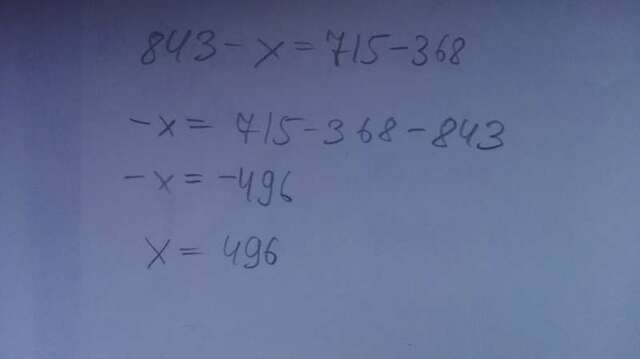 843 - x = 715 - 368
-x = 715 - 368 - 843
-x = -496
x = 496